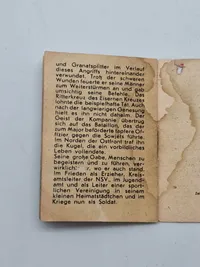 und Granatsplitter im Verlauf
dieses Angriffs hintereinander
verwundet. Trotz der schweren
Wunden feuerte er seine Männer
zum Weiterstürmen an und gab
umsichtig seine Befehle. Das
Ritterkreuz des Eisernen Kreuzes
lohnte die beispielhafte Tat. Auch
nach der langwierigen Genesung
hielt es ihn nicht daheim. Der
Geist der Kompanie übertrug
sich auf das Bataillon, das der
zum Major beförderte tapfere Of-
fizier gegen die Sowjets führte.
Im Norden der Ostfront traf ihn
die Kugel, die ein vorbildliches
Leben vollendete.
Seine große Gabe, Menschen zu
begeistern und zu führen, ver-
wirklich wo er auch stand.
Im Frieden als Erzieher, Kreis-
amtsleiter der NSV., im Jugend-
amt und als Leiter einer sport-
lichen Vereinigung in seinem
kleinen Heimatstädtchen und im
Kriege nun als Soldat.